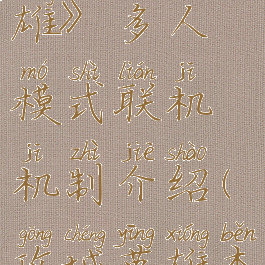 雄》 多人
mó shì lián jī
模式联机
jī zhì jiè shào
机制介绍(
gōng chéng yīng xióng běn